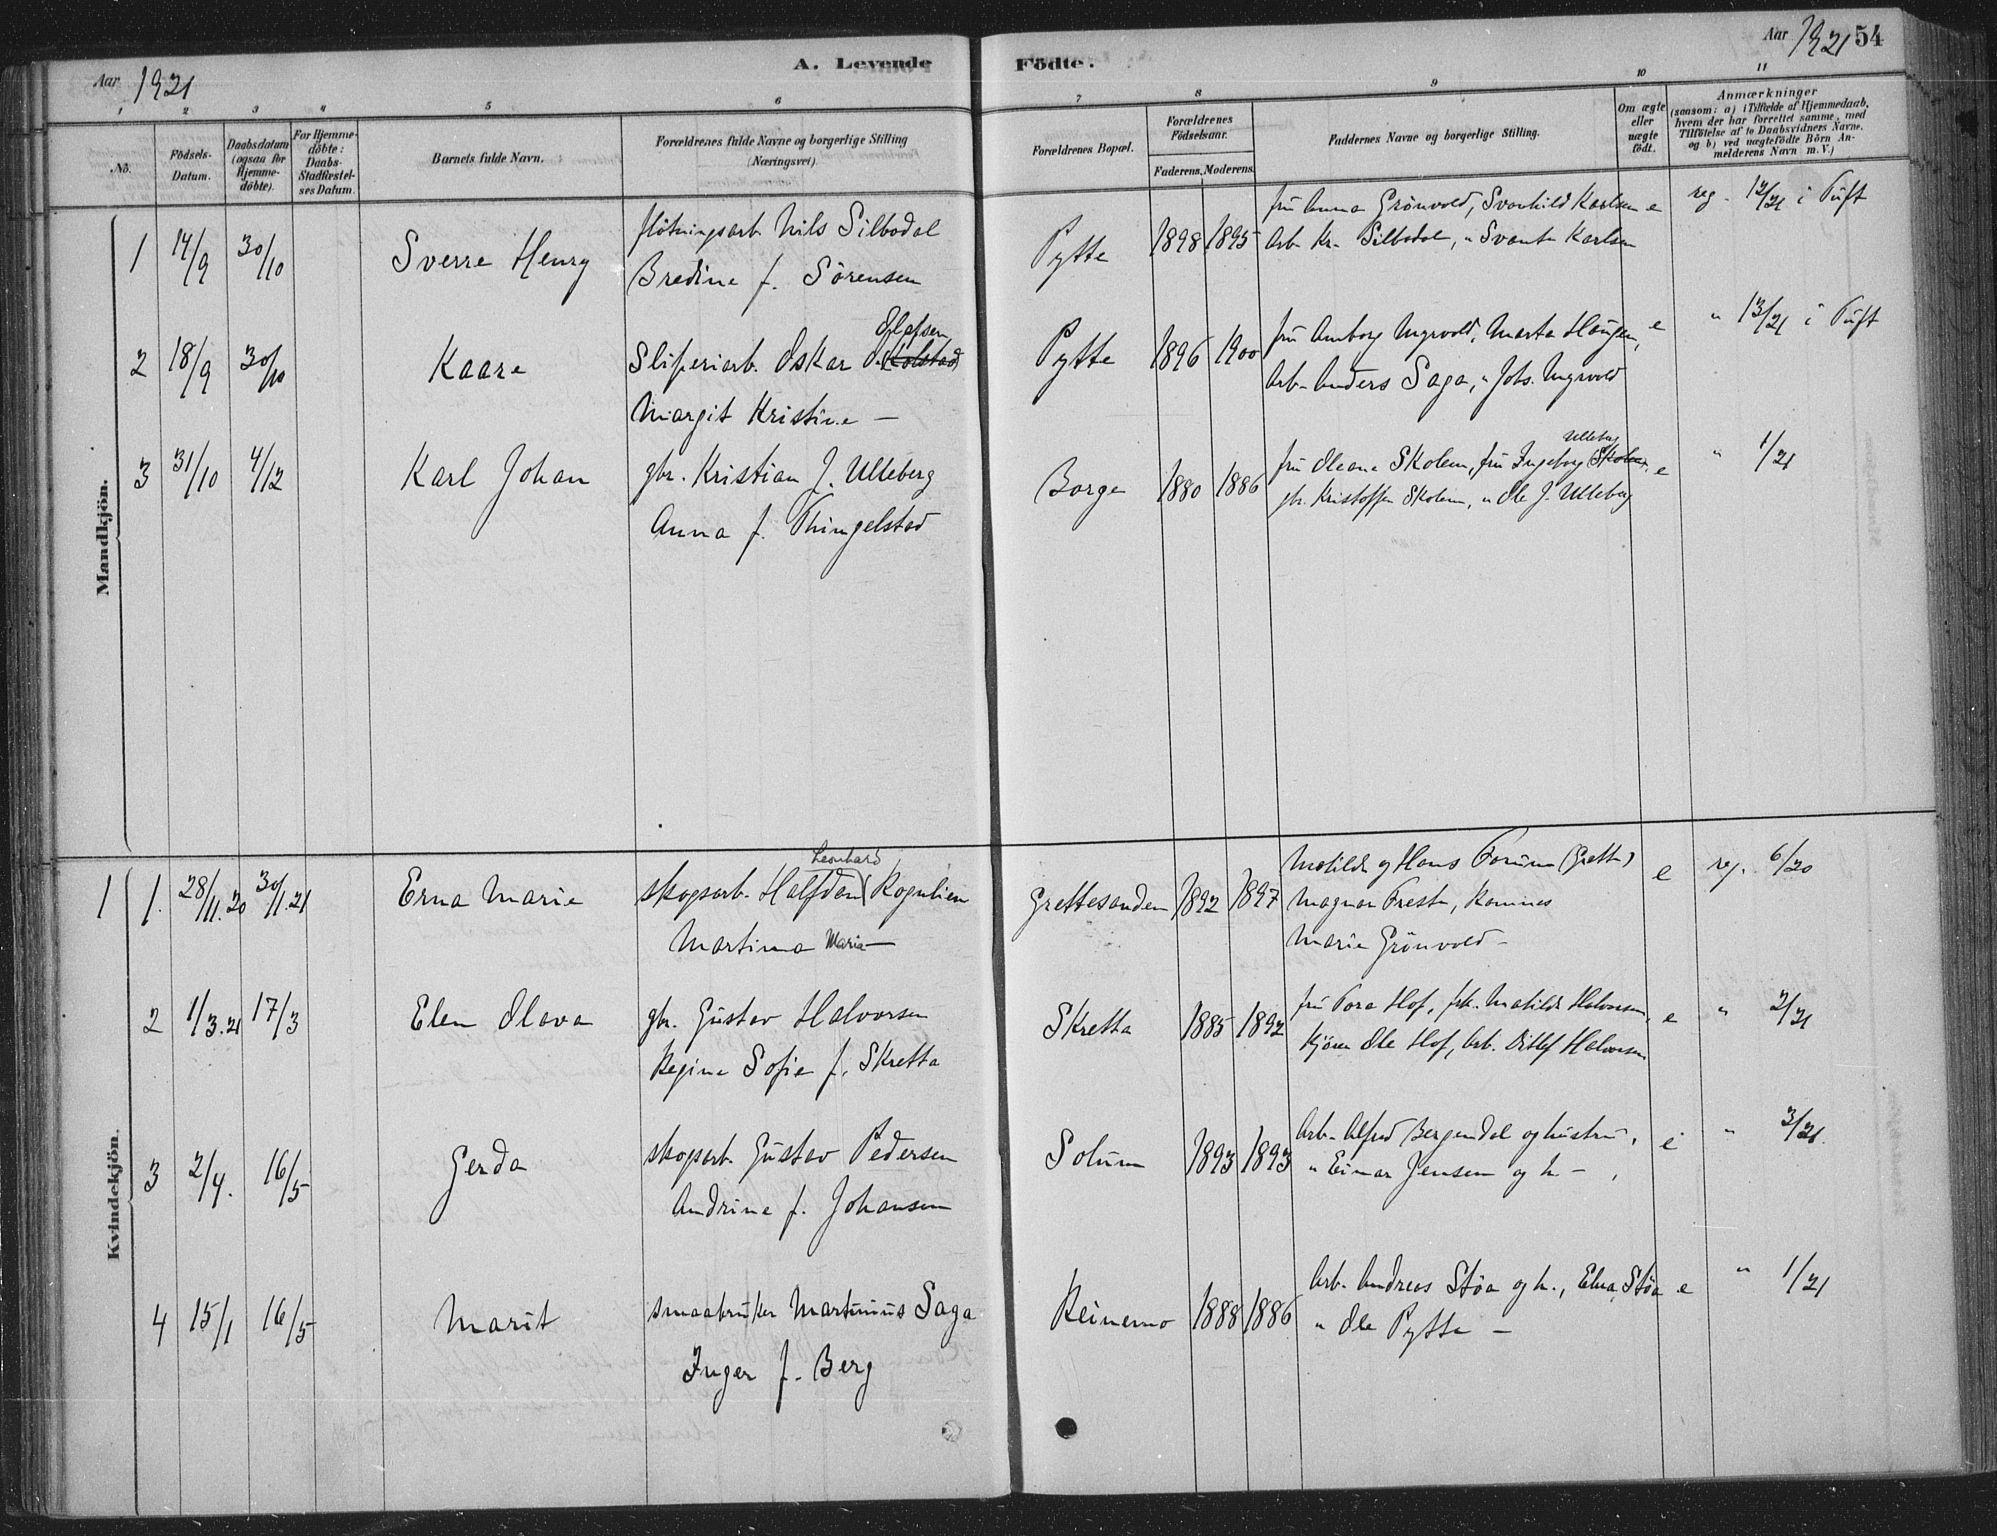 Aar 1921
A. Levende Födte.
Aar 1921 54
1 2 3 4 5 6 7 8 9 10 11
No.
Födsels-Datum.
Daabsdatum (ogsaa for Hjemme-döbte).
For Hjemme-döbte: Daabs-Stadfæstel-ses Datum.
Barnets fulde Navn.
Forældrenes fulde Navne og borgerlige Stilling (Næringsvei).
Forældrenes Bopæl.
Forældrenes Födselsaar.
Faderens. Moderens.
Faddernes Navne og borgerlige Stilling.
Om ægte eller uægte født.
Anmærkninger
(saasom: a) i Tilfælde af Hjemmedaab, hvem der har forrettet samme, med Tilføielse af to Daabsvidners Navne, og b) ved uægtefödte Börn An-melderens Navn m. V.)
Mandkjön.
1 14/9 30/10 Sverre Henry flötningsarb. Nils Silbodal Pytte 1898 1895 fru Anna Grönvold, Svanhild Karlsen e reg. 12/21 i Tuft
Bredine f. Sörensen arb. Kr. Silbodal, " Svante Karlsen
Olafsen
2 18/9 30/10 Kaare Sliperiarb. Oskar O. Kolstad Pytte 1896 1900 fru Amborg Myrvold, Marta Haugen, e " 13/21 i Tuft
Margit Kristine — Arb. Anders Saga, " Johs. Myrvold
Ulleberg
3 31/10 4/12 Karl Johan gbr. Kristian J. Ulleberg Borge 1880 1886 fru Oleane Skolem, fru Ingeborg Skolem, e " 1/21
Anna f. Thingelstad gbr. Kristoffer Skolem, " Ole J. Ulleberg
Kvindekjön.
Leonhard
1 1. 28/11.20 30/1.21 Erna Marie skogsarb. Halfdan Rognlien Grettesanden 1892 1897 Matilde og Hans Forum (Grette) e reg. 6/20
Martina Maria — Magnar Freste, Ramnes
Marie Grönvold —
2 1/3.21 17/3 Elen Olava gbr. Gustav Halvorsen Skretta 1885 1892 fru Tora Hof, frk. Matilde Halvorsen, e " 2/21
Regine Sofie f. Skretta Kjörer Ole Hof, Arb. Ditlef Halvorsen
3 2/4. 16/5 Gerda skogsarb. Gustav Pedersen Solum 1893 1893 Arb. Alfred Bergendal og hustru, e " 3/21.
Andrine f. Johansen " Einar Jensen og h —,
4 15/1 16/5 Marit smaabruker Martinius Saga Reinemo 1888 1886 Arb. Andreas Støa og h., Elna Støa e " 1/21
Inger f. Berg " Ole Pytte —